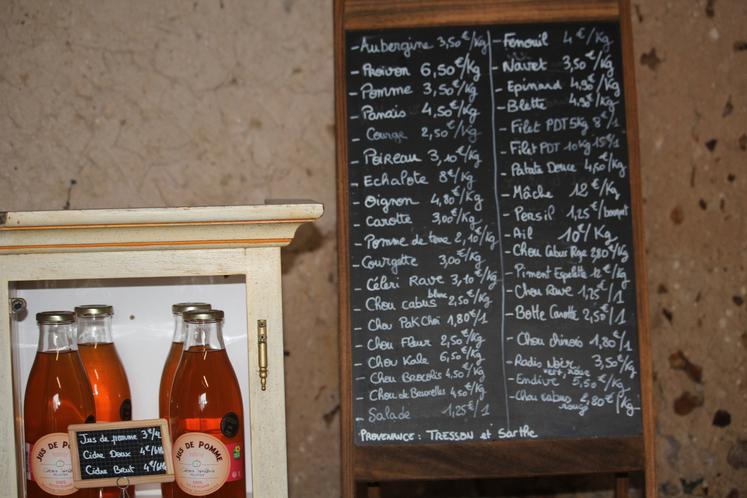 - Aubergine 3,50€/Kg
- Poivron 6,50€/Kg
- Pomme 3,50€/Kg
- Panais 4,50€/Kg
- Courge 2,50€/Kg
- Poireau 3,10€/Kg
- Echalote 8€/Kg
- Oignon 4,80€/Kg
- Carotte 3,00€/Kg
- Pomme de terre 2,10€/Kg
- Courgette 3,00€/Kg
- Céleri Rave 3,10€/Kg
- Chou cabus blanc 2,50€/Kg
- Chou Pak Choï 1,80€/1
- Chou Fleur 2,50€/Kg
- Chou Kale 6,50€/Kg
- Chou Brocolis 4,50€/Kg
- Chou de Bruxelles 4,50€/Kg
- Salade 1,25€/1
- Fenouil 4€/Kg
- Navet 3,50€/Kg
- Epinard 4,90€/Kg
- Blette 4,90€/Kg
- Filet PDT 5Kg 8€/1
- Filet PDT 10Kg 15€/1
- Patate Douce 4,50€/Kg
- Mâche 12€/Kg
- Persil 1,25€/bouquet
- Ail 10€/Kg
- Chou Cabus Rge 2,80€/Kg
- Piment Espelette 12€/Kg
- Chou Rave 1,25€/1
- Botte Carotte 2,50€/1
- Chou chinois 1,80€/1
- Radis Noir 3,50€/Kg
- Endive 5,50€/Kg
- Chou cabus rouge 2,80€/Kg
PROVENANCE : TRESSON et Sarthe
Jus de pomme 3€/
Cidre Doux 4€/
Cidre Brut 4€/
JUS DE POMME
JUS DE POMME